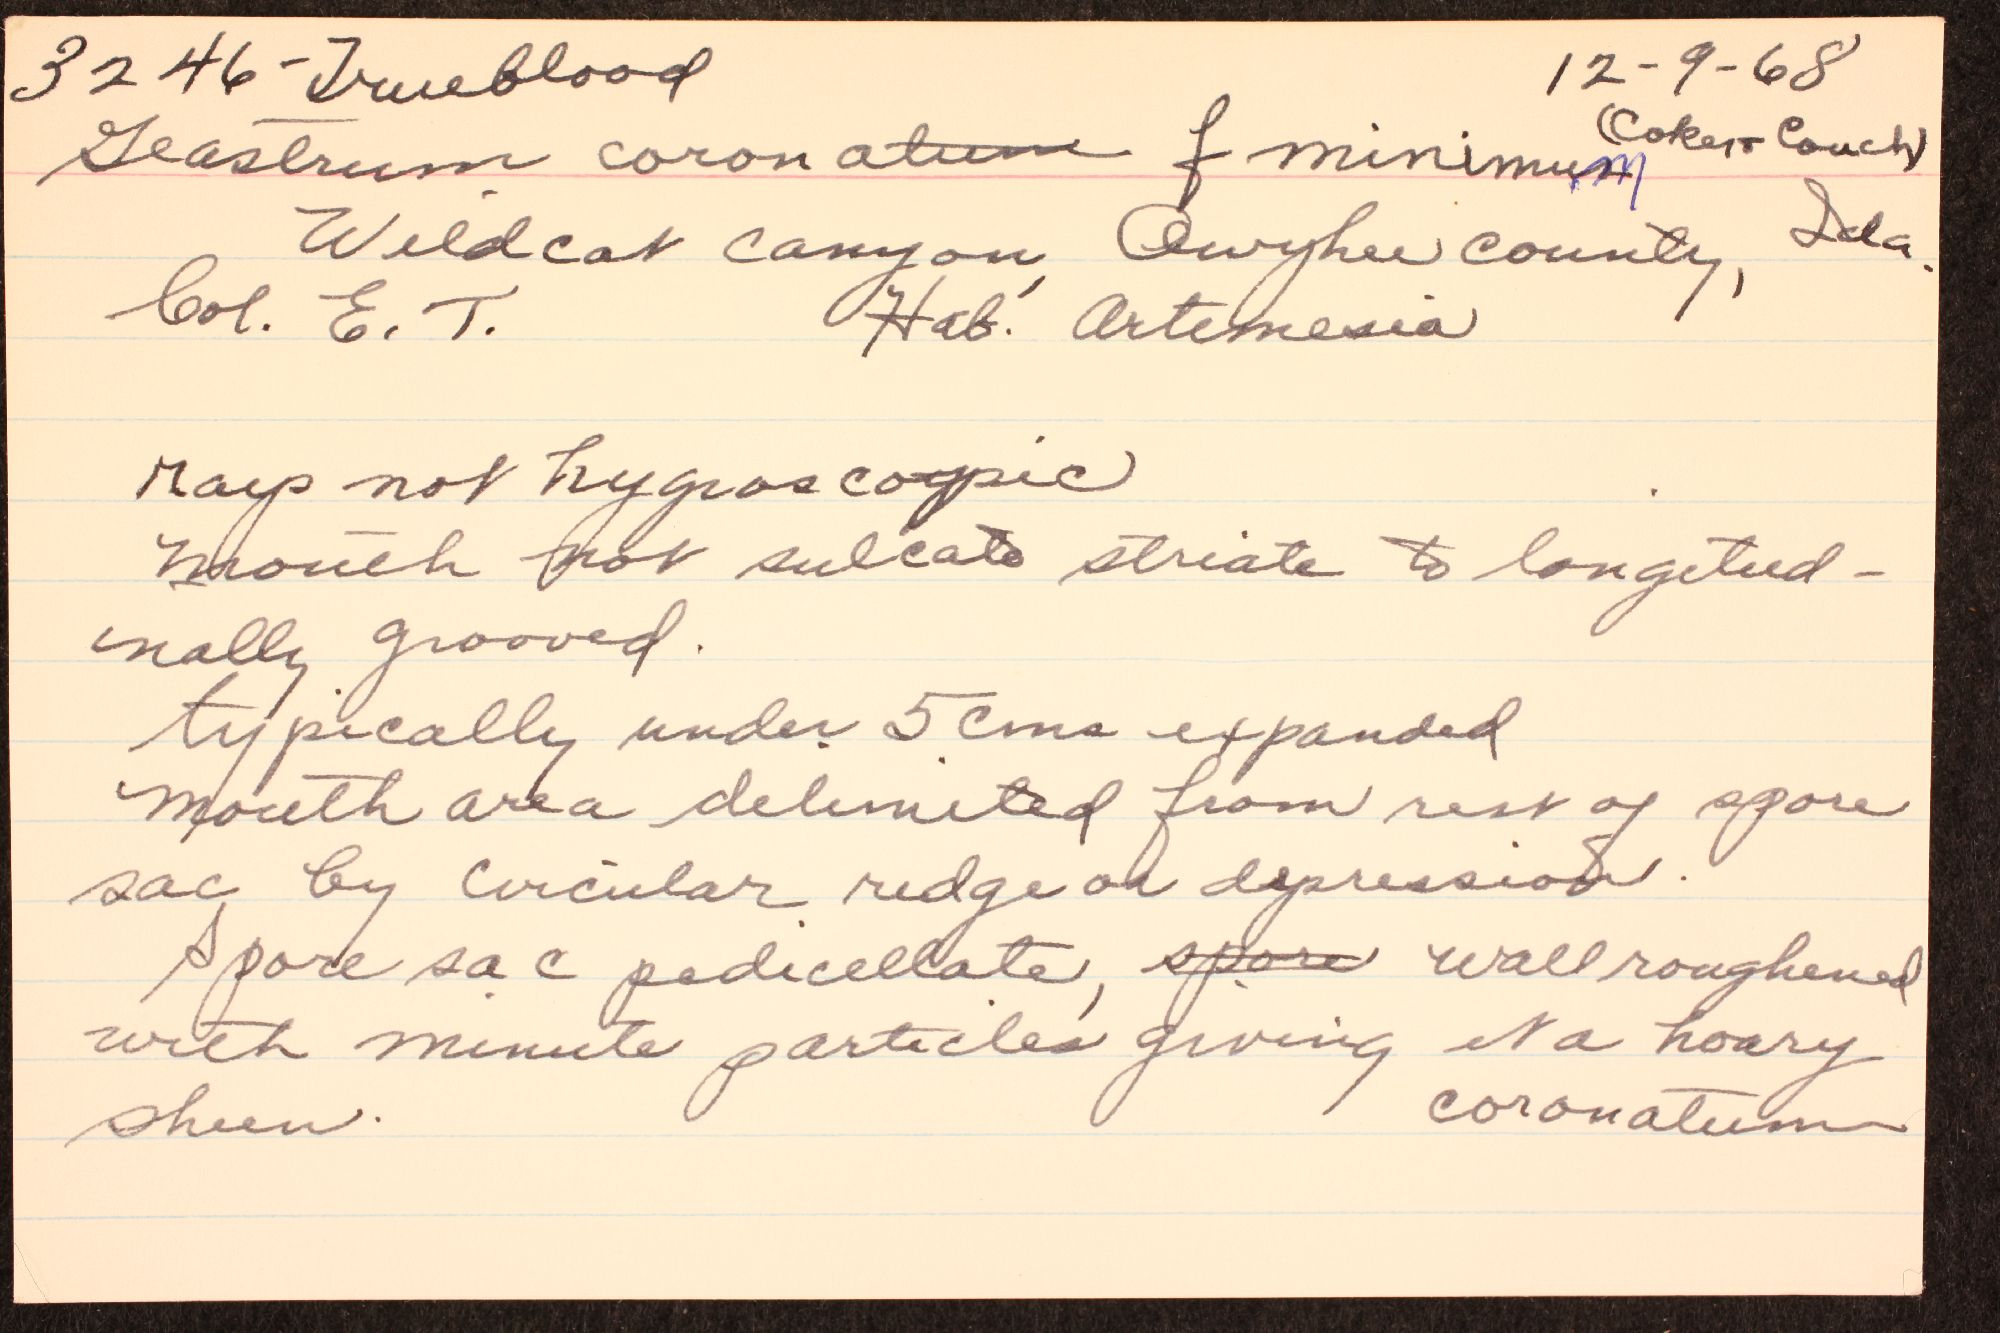 3246-Trueblood 12-9-68
(Coker + Couch)
Geastrum coronatum f minimum
Wildcat canyon, Owyhee county, Ida.
Col. E. T. Hab. Artemesia
Rays not hygroscopic
Mouth not sulcate striate to longitud-
inally grooved.
Typically under 5 cms expanded
Mouth area delimited from rest of spore
sac by circular ridge or depression.
Spore sac pedicellate, spore wall roughened
with minute particles giving it a hoary
sheen. coronatum